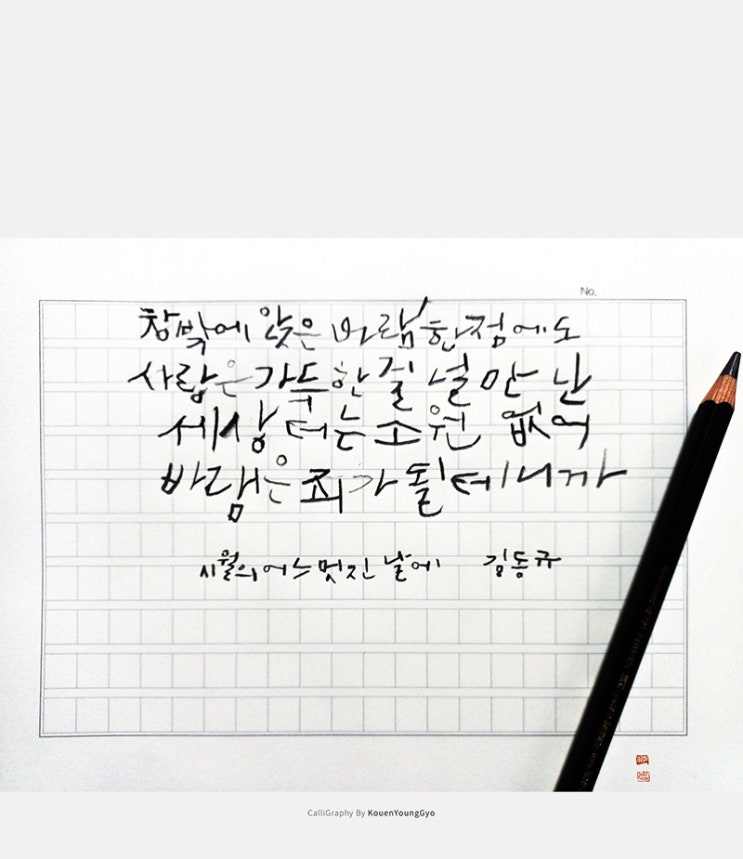 No.
창밖에 앉은 바람 한 점에도
사랑은 가득한 걸 널 만난
세상 더는 소원 없어
바램은 죄가 될 테니까
시월의 어느 멋진 날에 김동규
CalliGraphy By KouenYoungGyo